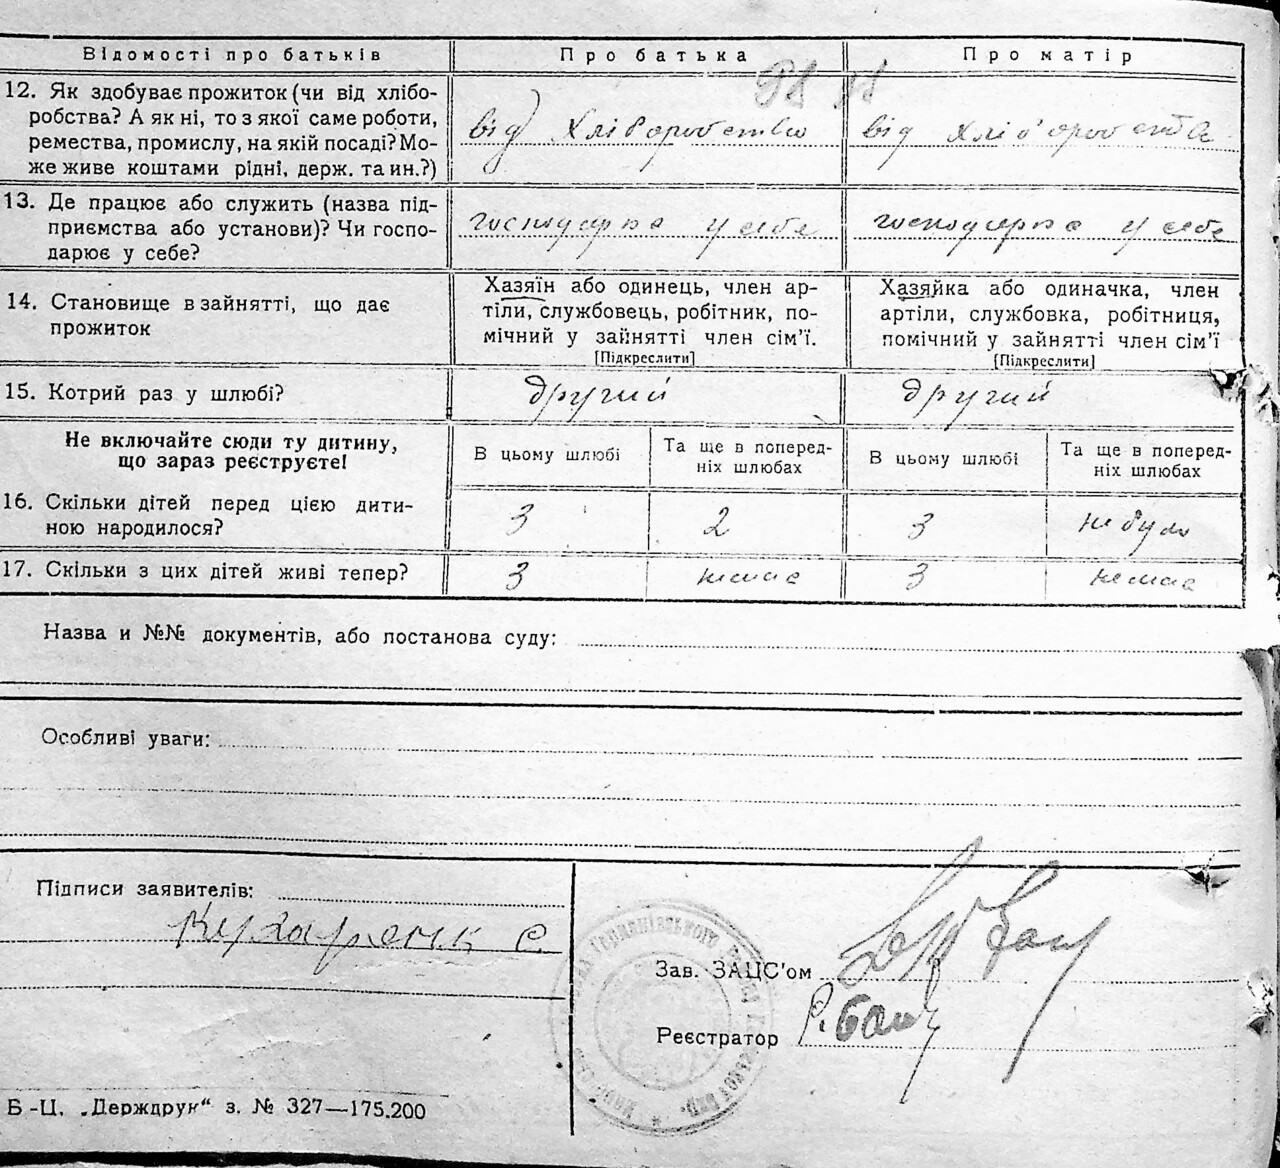 Відомості про батьків Про батька Про матір
12. Як здобуває прожиток (чи від хлібо-
робства? А як ні, то з якої саме роботи,
ремества, промислу, на якій посаді? Мо-
же живе коштами рідні, держ. та ин.?)
від Хліборобства від хлі б'оробства
13. Де працює або служить (назва під-
приємства або установи)? Чи госпо-
дарює у себе?
господарка у себе господарка у себе
14. Становище в зайнятті, що дає
прожиток
Хазяїн або одинець, член ар-
тіли, службовець, робітник, по-
мічний у зайнятті член сім'ї.
[Підкреслити]
Хазяйка або одиначка, член
артіли, службовка, робітниця,
помічний у зайнятті член сім'ї
[Підкреслити]
15. Котрий раз у шлюбі? другий другий
Не включайте сюди ту дитину,
що зараз реєструєте!
В цьому шлюбі
Та ще в поперед-
ніх шлюбах
В цьому шлюбі
Та ще в поперед-
ніх шлюбах
16. Скільки дітей перед цією дити-
ною народилося?
3 2 3 не було
17. Скільки з цих дітей живі тепер? 3 немає 3 немає
Назва и №№ документів, або постанова суду:
Особливі уваги:
Підписи заявителів:
Зав. ЗАЦС'ом
Реєстратор
Б-Ц. „Держдрук“ з. № 327—175.200